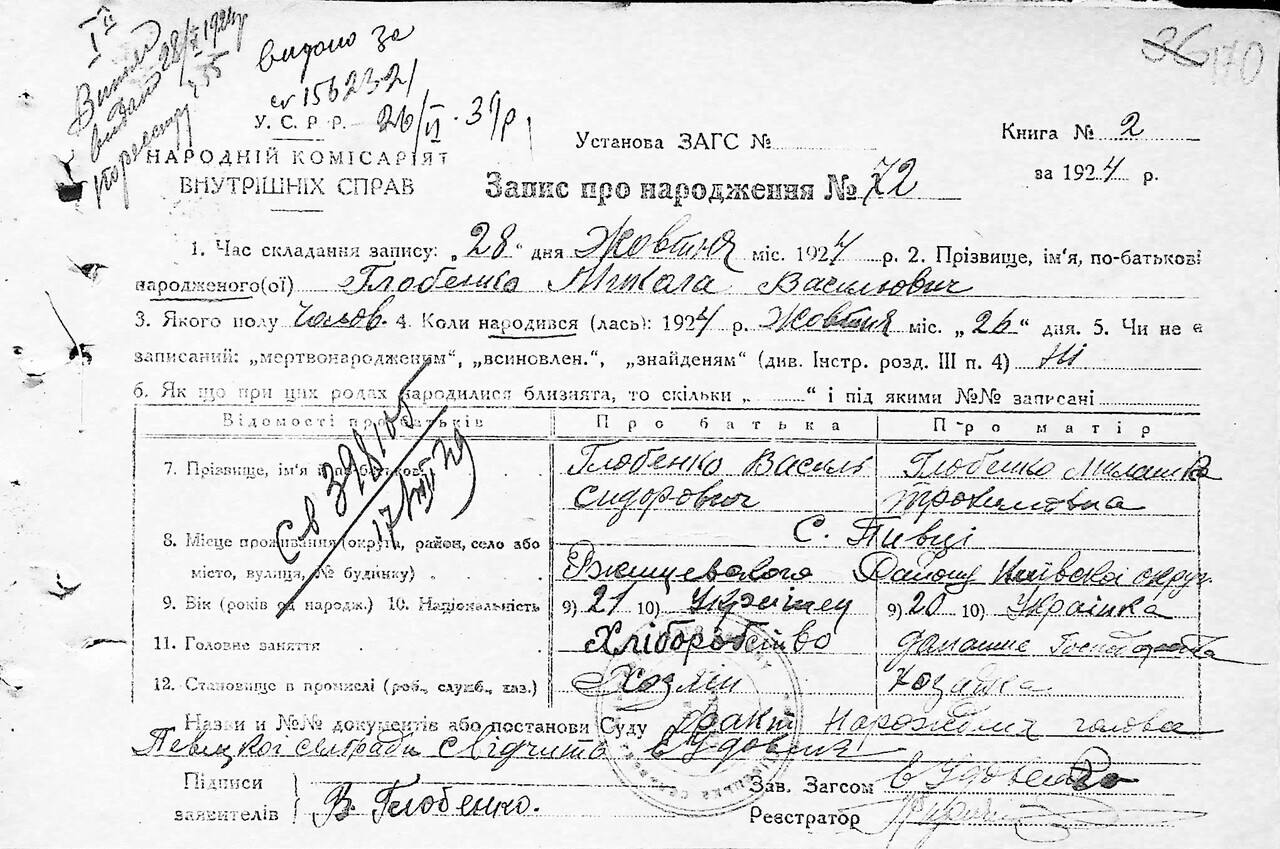 36 170
Витяг
видано 28/X 1924
по реєстру 255
видано за
св 1562321
26/VI-39р
У. С. Р. Р.
НАРОДНІЙ КОМІСАРІЯТ
ВНУТРІШНІХ СПРАВ
Установа ЗАГС №
Книга № 2
за 1924 р.
Запис про народження № 72
1. Час складання запису: „28“ дня Жовтня міс. 1924 р. 2. Прізвище, ім'я, по-батькові
народженого(ої) Глобенко Микола Васильович
3. Якого полу Чолов. 4. Коли народився (лась): 1924 р. Жовтня міс. „26“ дня. 5. Чи не є
записаний: „мертвонародженим“, „всиновлен.“, „знайденям“ (див. Інстр. розд. III п. 4) Ні
6. Як що при цих родах народилися близнята, то скільки „ “ і під якими №№ записані
Відомості про батьків Про батька Про матір
7. Прізвище, ім'я й по-батькові Глобенко Василь Глобенко Милашка
Сидорович Трохимовна
С. Пивці
8. Місце проживання (округа, район, село або
місто, вулиця, № будинку) Ржищевського Району Київскої округ.
9. Вік (років од народж.) 10. Національність 9) 21 10) Українец 9) 20 10) Українка
11. Головне заняття Хліборобство домашне Господарство
12. Становище в промислі (роб., служб., хаз.) Хозяїн хозяйка
Св 398105
17/VII 29
Назви и №№ документів або постанови Суду факт Народження голова
Певецкої сельради свідчить
Підписи
заявителів В. Глобенко.
Зав. Загсом
Реєстратор